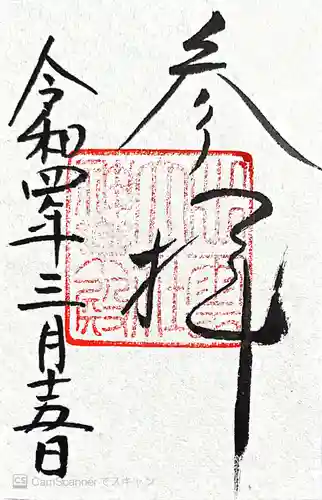 参拝
令和四年三月十五日
CS CamScanner でスキャン